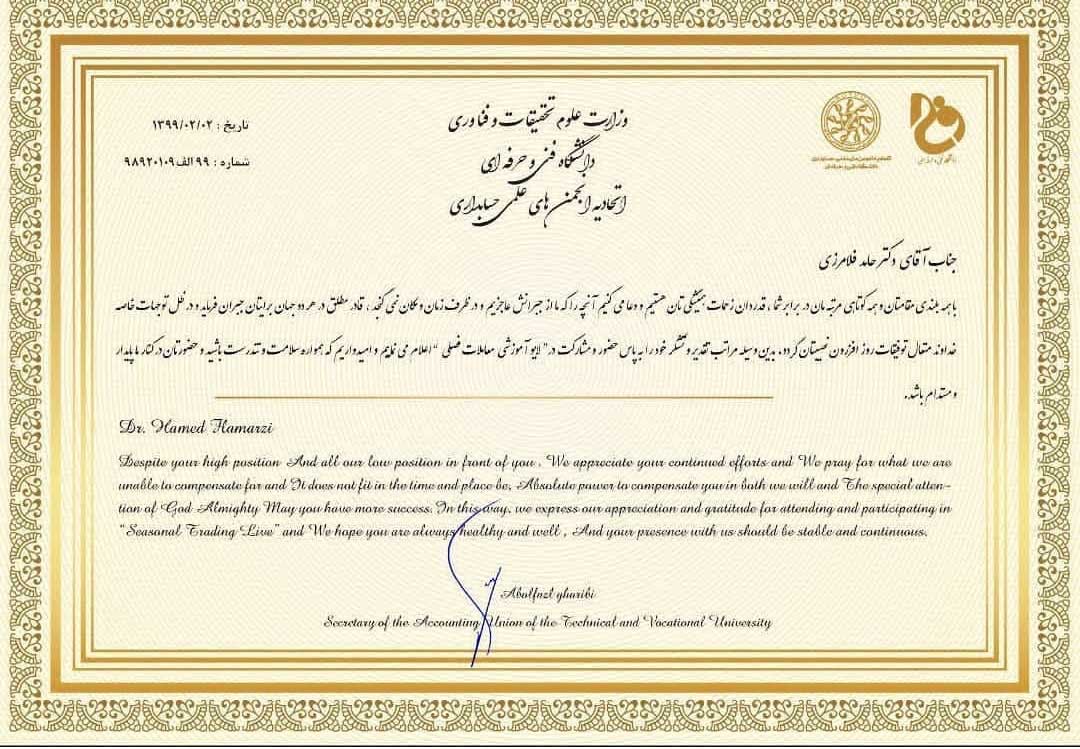 وزارت علوم تحقیقات و فناوری
دانشگاه فنی و حرفه ای
اتحادیه انجمن های علمی حسابداری
تاریخ : ۱۳۹۹/۰۲/۰۲
شماره : ۹۹ الف ۹۸۹۲۰۱۰۹
جناب آقای دکتر حامد فلامرزی
با همه بلندی مقامتان و همه کوتاهی مرتبه مان در برابر شما ، قدردان زحمات همیشگی تان هستیم و دعا می کنیم آنچه را که ما از جبرانش عاجزیم و در ظرف زمان و مکان نمی گنجد ، قادر مطلق در هر دو جهان برایتان جبران فرماید ، و در ظل توجهات خاصه
خداوند متعال توفیقات روز افزون نصیبتان گردد، بدین وسیله مراتب تقدیر و تشکر خود را به پاس حضور و مشارکت در " لایو آموزشی معاملات فصلی " اعلام می نماییم و امیدواریم که همواره سلامت و تندرست باشید و حضورتان در کنار ما پایدار
و مستدام باشد.
Dr. Hamed Flamarzi
Despite your high position And all our low position in front of you , We appreciate your continued efforts and We pray for what we are
unable to compensate for and It does not fit in the time and place be, Absolute power to compensate you in both we will and The special atten-
tion of God Almighty May you have more success. In this way, we express our appreciation and gratitude for attending and participating in
"Seasonal Trading Live" and We hope you are always healthy and well , And your presence with us should be stable and continuous.
Abolfazl gharibi
Secretary of the Accounting Union of the Technical and Vocational University